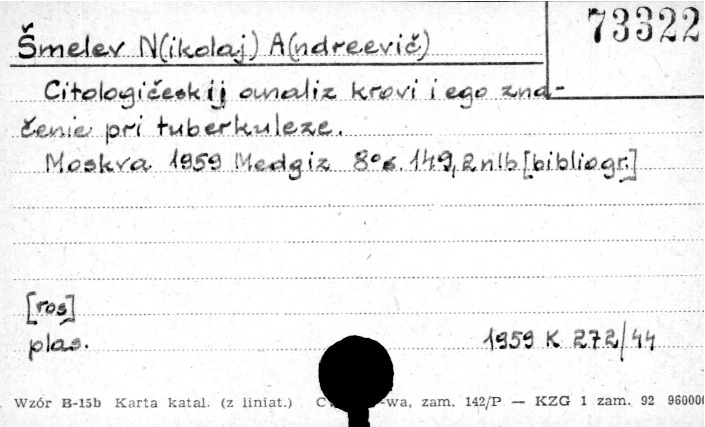 73322
Šmelev N(ikolaj) A(ndreevič)
Citologičeskij analiz krovi i ego zna-
čenie pri tuberkuleze.
Moskva 1959 Medgiz 8° s. 149, 2 nlb [bibliogr.]
[ros]
plas.
1959 K 272/44
Wzór B-15b Karta katal. (z liniat.) -wa, zam. 142/P — KZG 1 zam. 92 960000